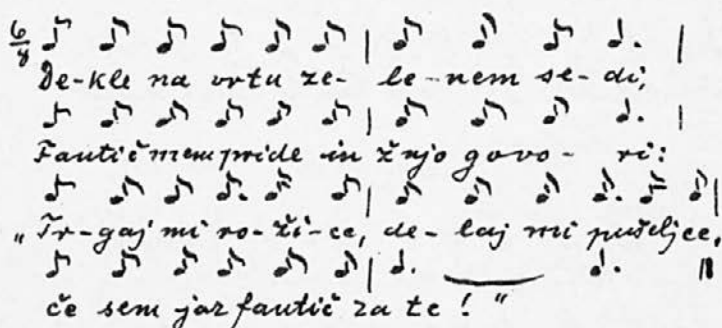 6/8
De-kle na vrtu ze- le-nem se-di,
Fantič mem pride in žnjo govo- ri:
„Tr-gaj mi ro-ži-ce, de-laj mi pušeljce,
če sem jaz fantič za te!"